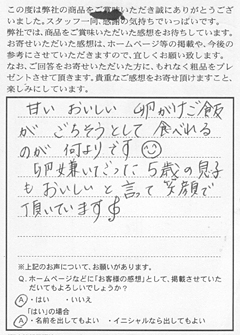 この度は弊社の商品をご賞味いただき誠にありがとうござ
いました。スタッフ一同、感謝の気持ちでいっぱいです。
弊社では、商品をご賞味いただいた感想をお待ちしています。
お寄せいただいた感想は、ホームページ等の掲載や、今後の
参考にさせていただきますので、宜しくお願い致します。
なお、ご回答をお寄せいただいた方に、もれなく粗品をプレ
ゼントさせて頂きます。貴重なご感想をお寄せ頂けますこと、
楽しみにしています。
甘い おいしい 卵がけご飯
が ごちそうとして 食べれる
のが 何よりです
卵嫌いでした 5歳の息子
も おいしい と 言って 笑顔で
頂いています
※上記のお声について、お願いがあります。
Q. ホームページなどに「お客様の感想」として、掲載させていた
だいてもよろしいでしょうか？
A ・はい ・いいえ
「はい」の場合
A ・名前を出してもよい ・イニシャルなら出してもよい